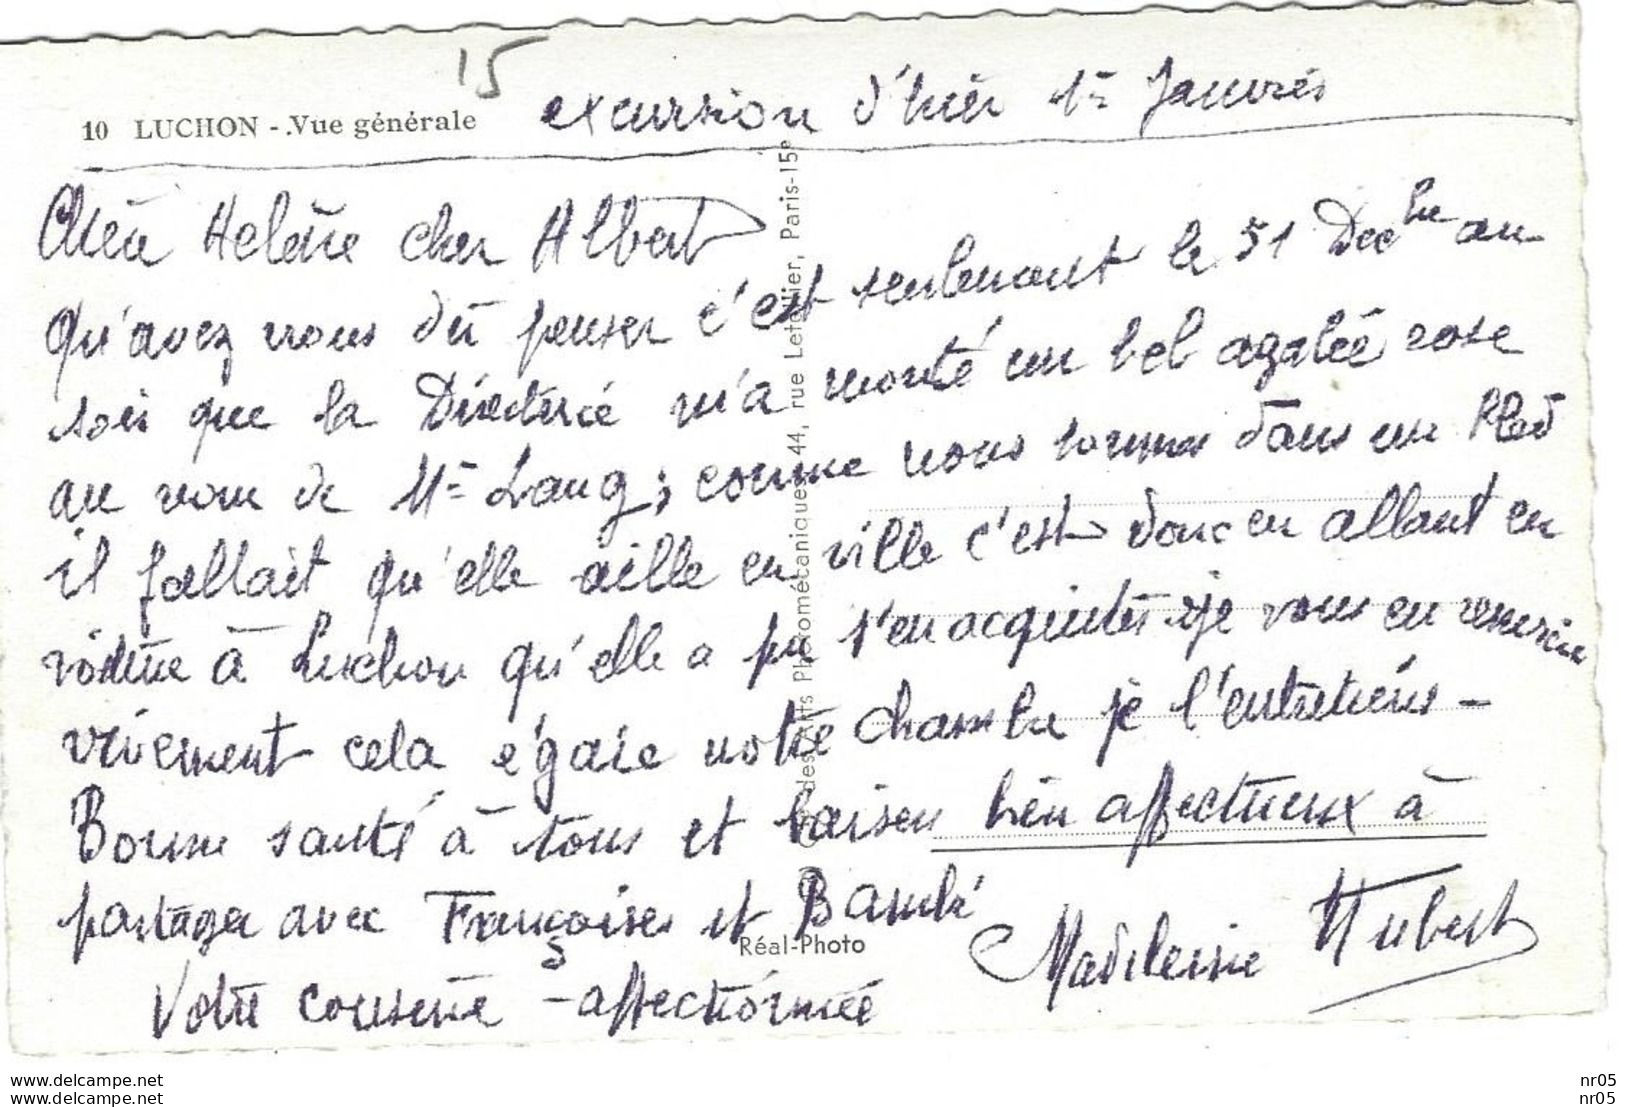 15
10 LUCHON - Vue générale
excursion d'hier 1er Janvier
Chère Helène cher Albert
Qu'avez vous dû penser c'est seulement le 31 Decbre au
soir que la Directrice m'a monté un bel azalée rose
au nom de Mr Lang; comme nous sommes dans un Bled
il fallait qu'elle aille en ville c'est donc en allant en
visite à Luchon qu'elle a pu s'en acquitter je vous en remercie
vivement cela égaie notre chambre je l'entretiens -
Bonne santé à tous et baisers bien affectueux à
partager avec Françoise et Bambi
Votre cousine - affectionnée
Madeleine Hubert
Réal-Photo
44, rue Letellier, Paris-15e
www.delcampe.net
www.delcampe.net
nr05
nr05